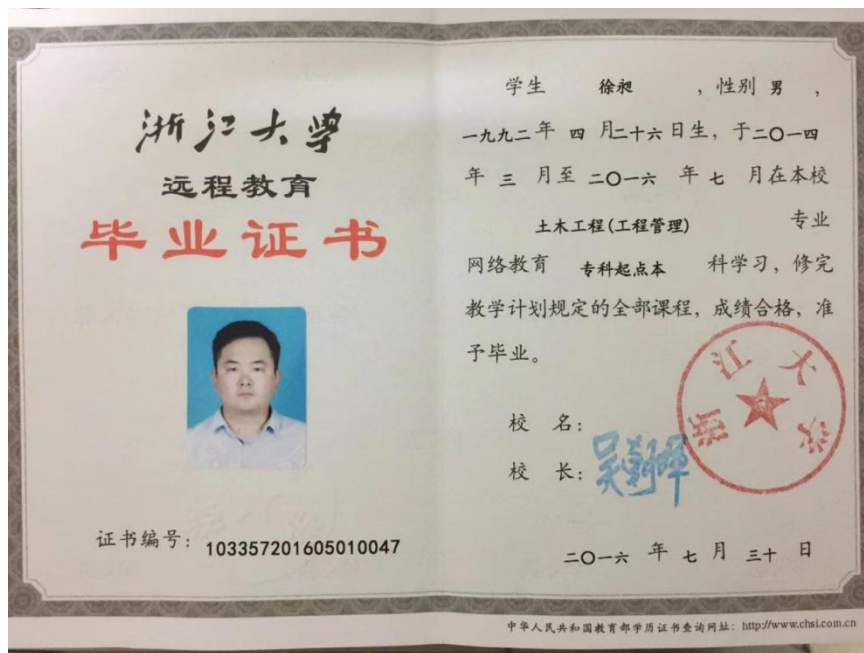 浙江大学
远程教育
毕业证书
证书编号：103357201605010047
学生 徐昶 ，性别 男 ，
一九九二年 四 月二十六日生，于二〇一四
年 三 月至 二〇一六 年 七 月在本校
土木工程(工程管理) 专业
网络教育 专科起点本 科学习，修完
教学计划规定的全部课程，成绩合格，准
予毕业。
浙江大学
校 名：
校 长：吴朝晖
二〇一六 年 七 月 三十 日
中华人民共和国教育部学历证书查询网址：http://www.chsi.com.cn